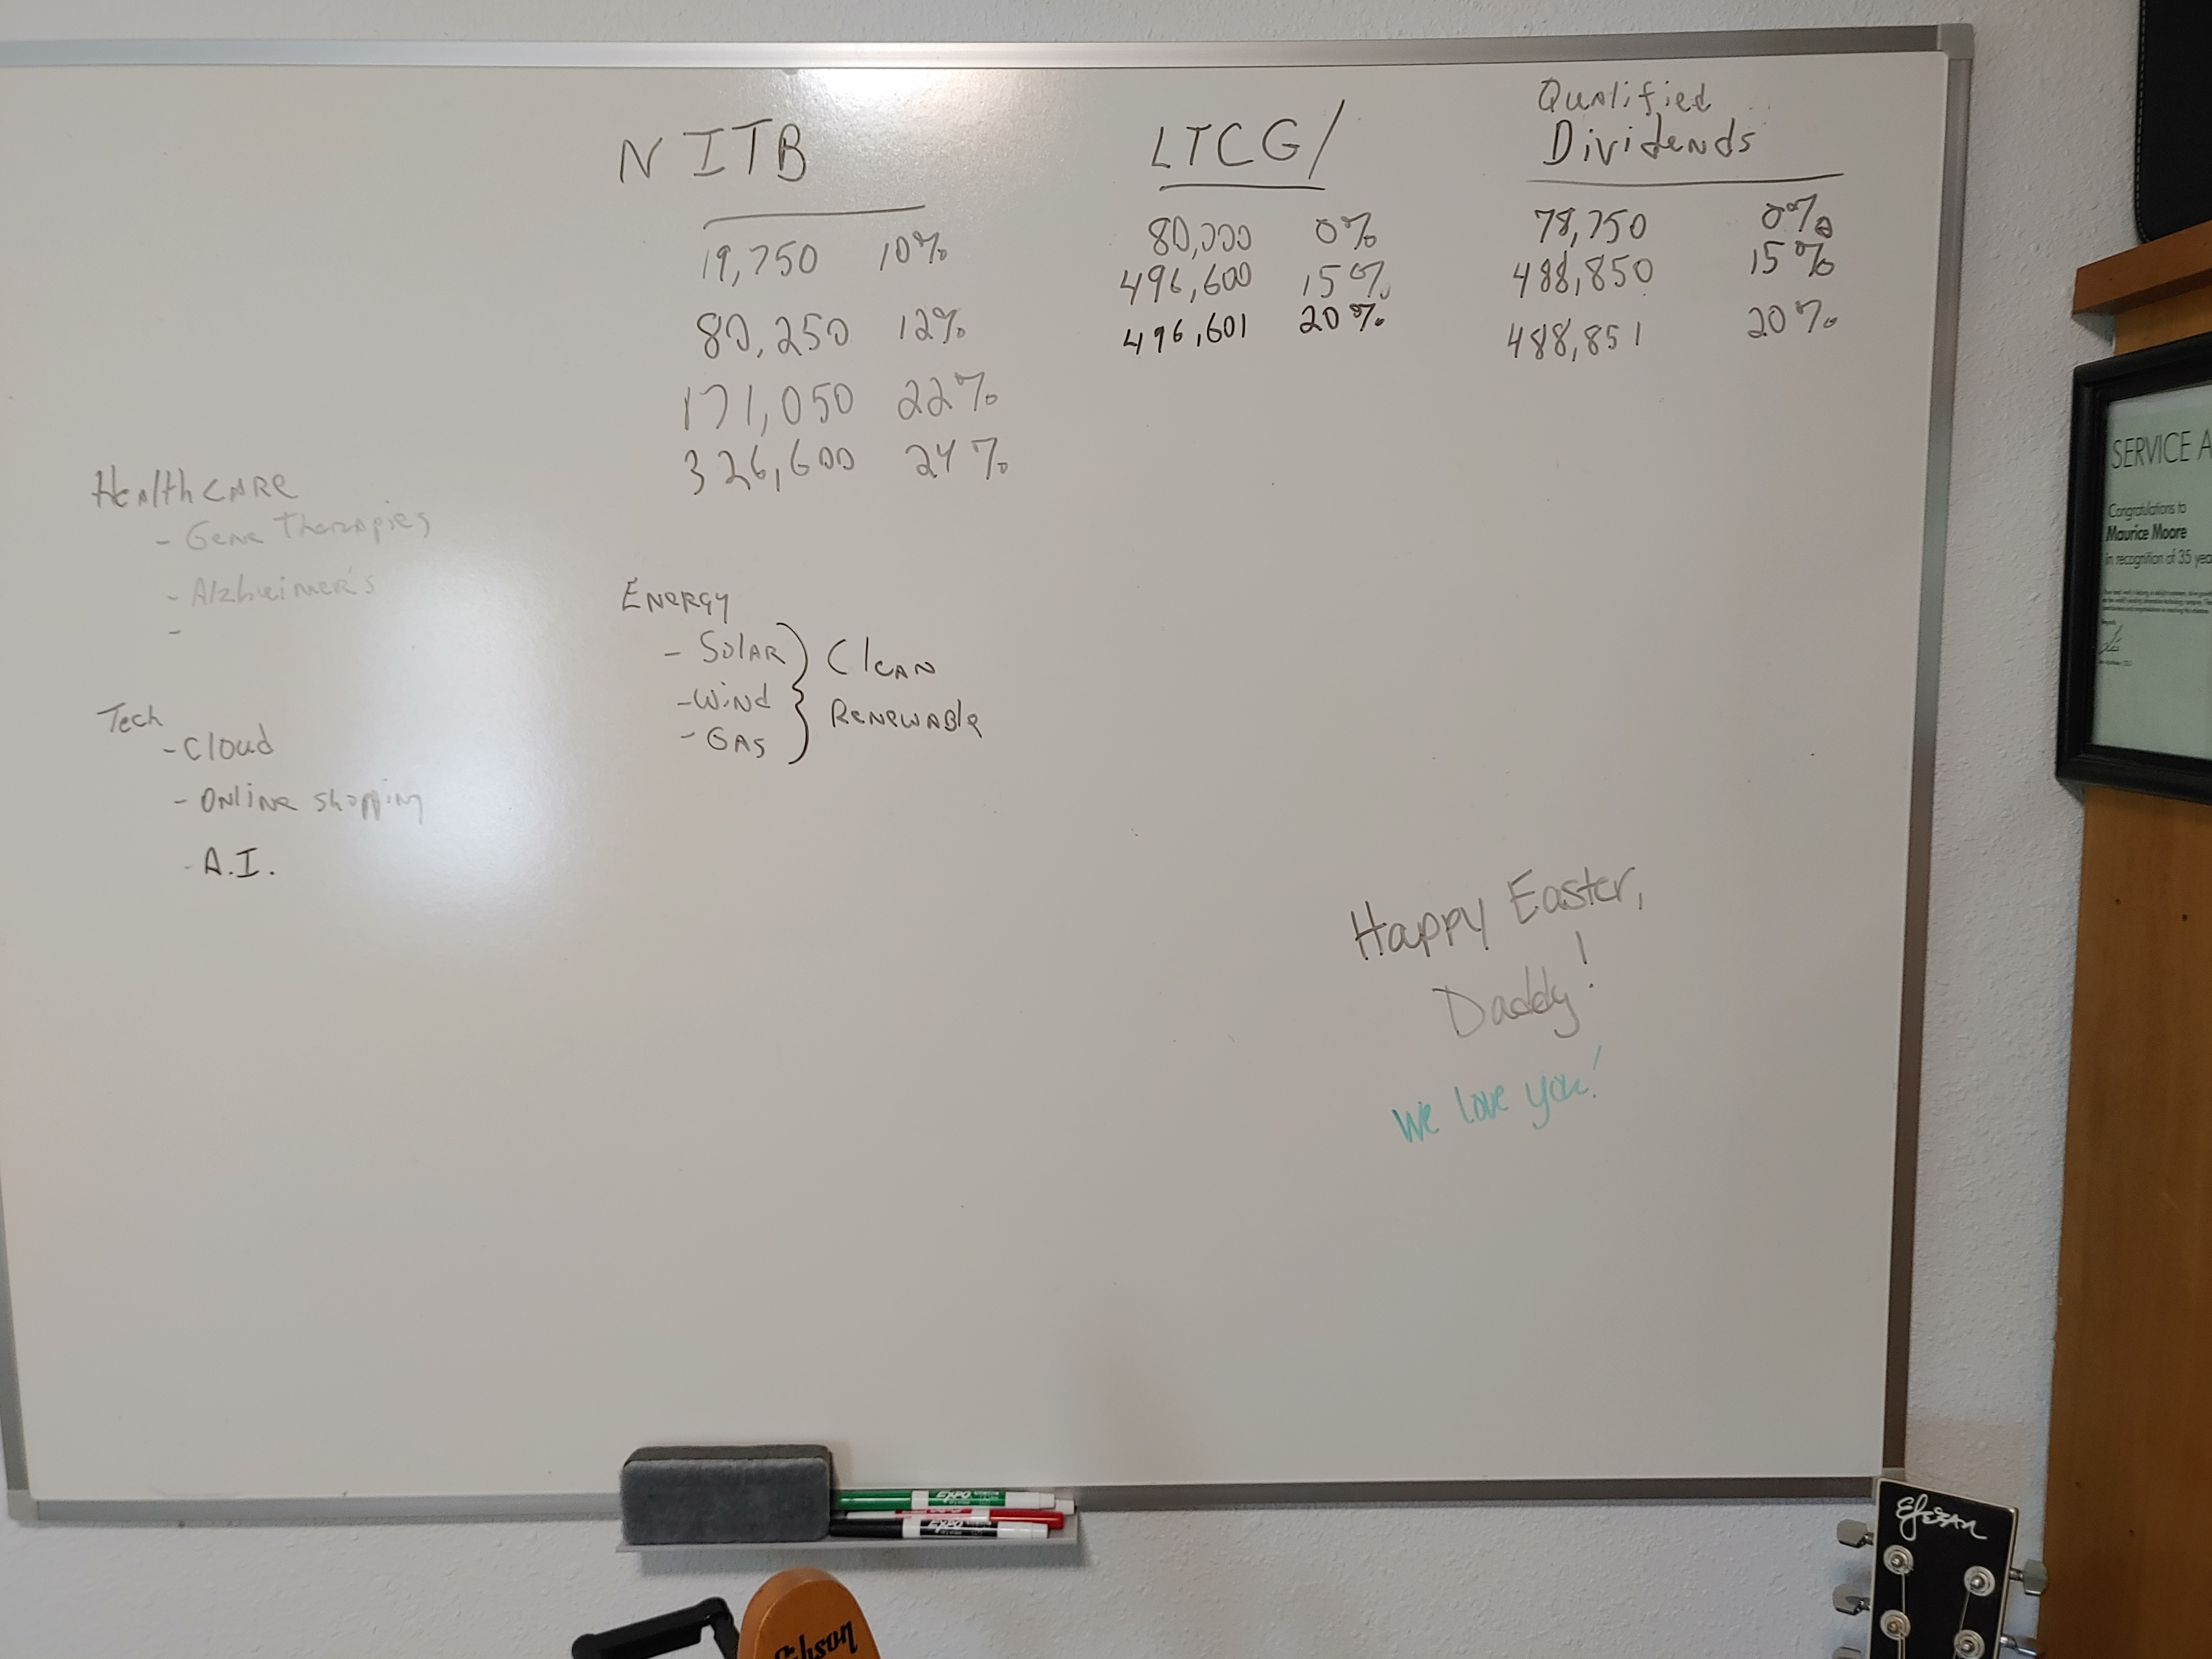 NITB
19,750 10%
80,250 12%
171,050 22%
326,600 24%
LTCG/
80,000 0%
496,600 15%
496,601 20%
Qualified
Dividends
78,750 0%
488,850 15%
488,851 20%
HealthCARe
- Gene Therapies
- Alzheimer's
-
Tech
- Cloud
- Online shopping
- A.I.
Energy
- Solar
- Wind
- GAS
Clean
Renewable
Happy Easter,
Daddy!
We love you!
SERVICE A
Congratulations to
Maurice Moore
in recognition of 35 yea
EXPO
EXPO
Gibson